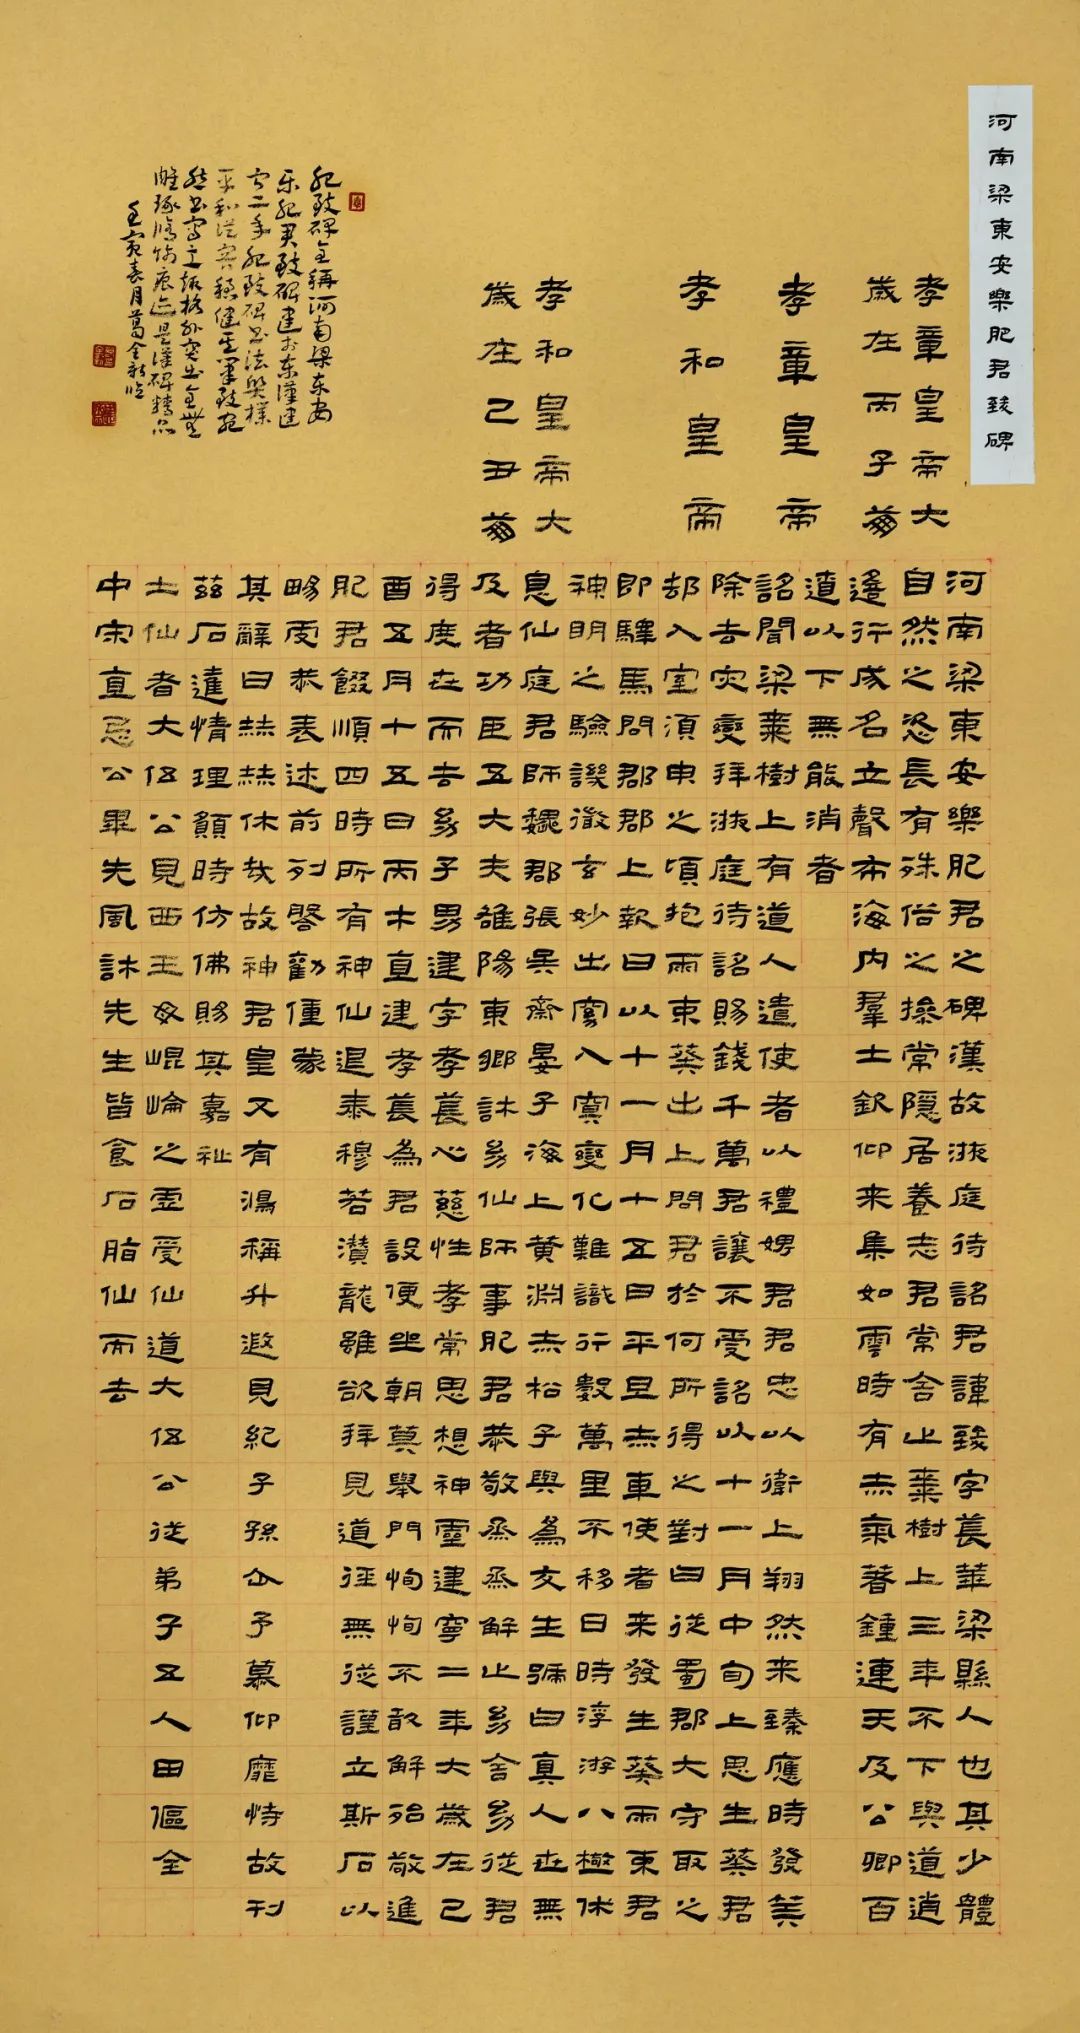 河南梁東安樂肥君致碑
孝章皇帝大
歲在丙子崩
孝章皇帝
孝和皇帝
孝和皇帝大
歲在己丑崩
河南梁東安樂肥君之碑漢故掖庭待詔君諱致字萇華梁縣人也其少體
自然之恣長有殊俗之操常隱居養志君常舍止棗樹上三年不下與道逍
遙行成名立聲布海内羣士欽仰来集如雲時有赤氣著鍾連天及公卿百
遼以下無能消者
詔聞梁棗樹上有道人遣使者以禮娉君君忠以衛上翔然来臻應時發筭
除去灾變拜掖庭待詔賜錢千萬君讓不受詔以十一月中旬上思生葵君
却入室須臾之頃抱兩束葵出上問君於何所得之對曰從蜀郡大守取之
即驛馬問郡郡上報曰以十一月十五日平旦赤車使者来發生葵兩束君
神明之驗譏徹玄妙出窈入冥變化難識行數萬里不移日時浮游八極休
息仙庭君師魏郡張吳齋晏子海上黃淵赤松子與為友生號曰真人世無
及者功臣五大夫雒陽東鄉許幼仙師事肥君恭敬烝烝解止幼舍幼從君
得度世而去幼子男建字孝萇心慈性孝常思想神靈建寧二年大歲在己
酉五月十五日丙午直建孝萇為君設便坐朝莫舉門恂恂不敢解殆敬進
肥君餟順四時所有神仙退泰穆若潛龍雖欲拜見道徑無從謹立斯石以
暢虔恭表述前列啓勸僮蒙
其辭曰赫赫休哉故神君皇又有鴻稱升遐見紀子孫企予慕仰靡恃故刊
茲石達情理願時仿佛賜其嘉祉
土仙者大伍公見西王母崐崘之虛受仙道大伍公從弟子五人田傴全
中宋直忌公畢先風許先生皆食石脂仙而去
肥致碑全稱河南梁东安
乐肥君致碑建於东漢建
宁二年肥致碑书法奥樸
平和從容穩健其筆致宛
然书写之趣格外突出全無
雕琢修饰痕迹是漢碑精品
壬寅春月葛全新临